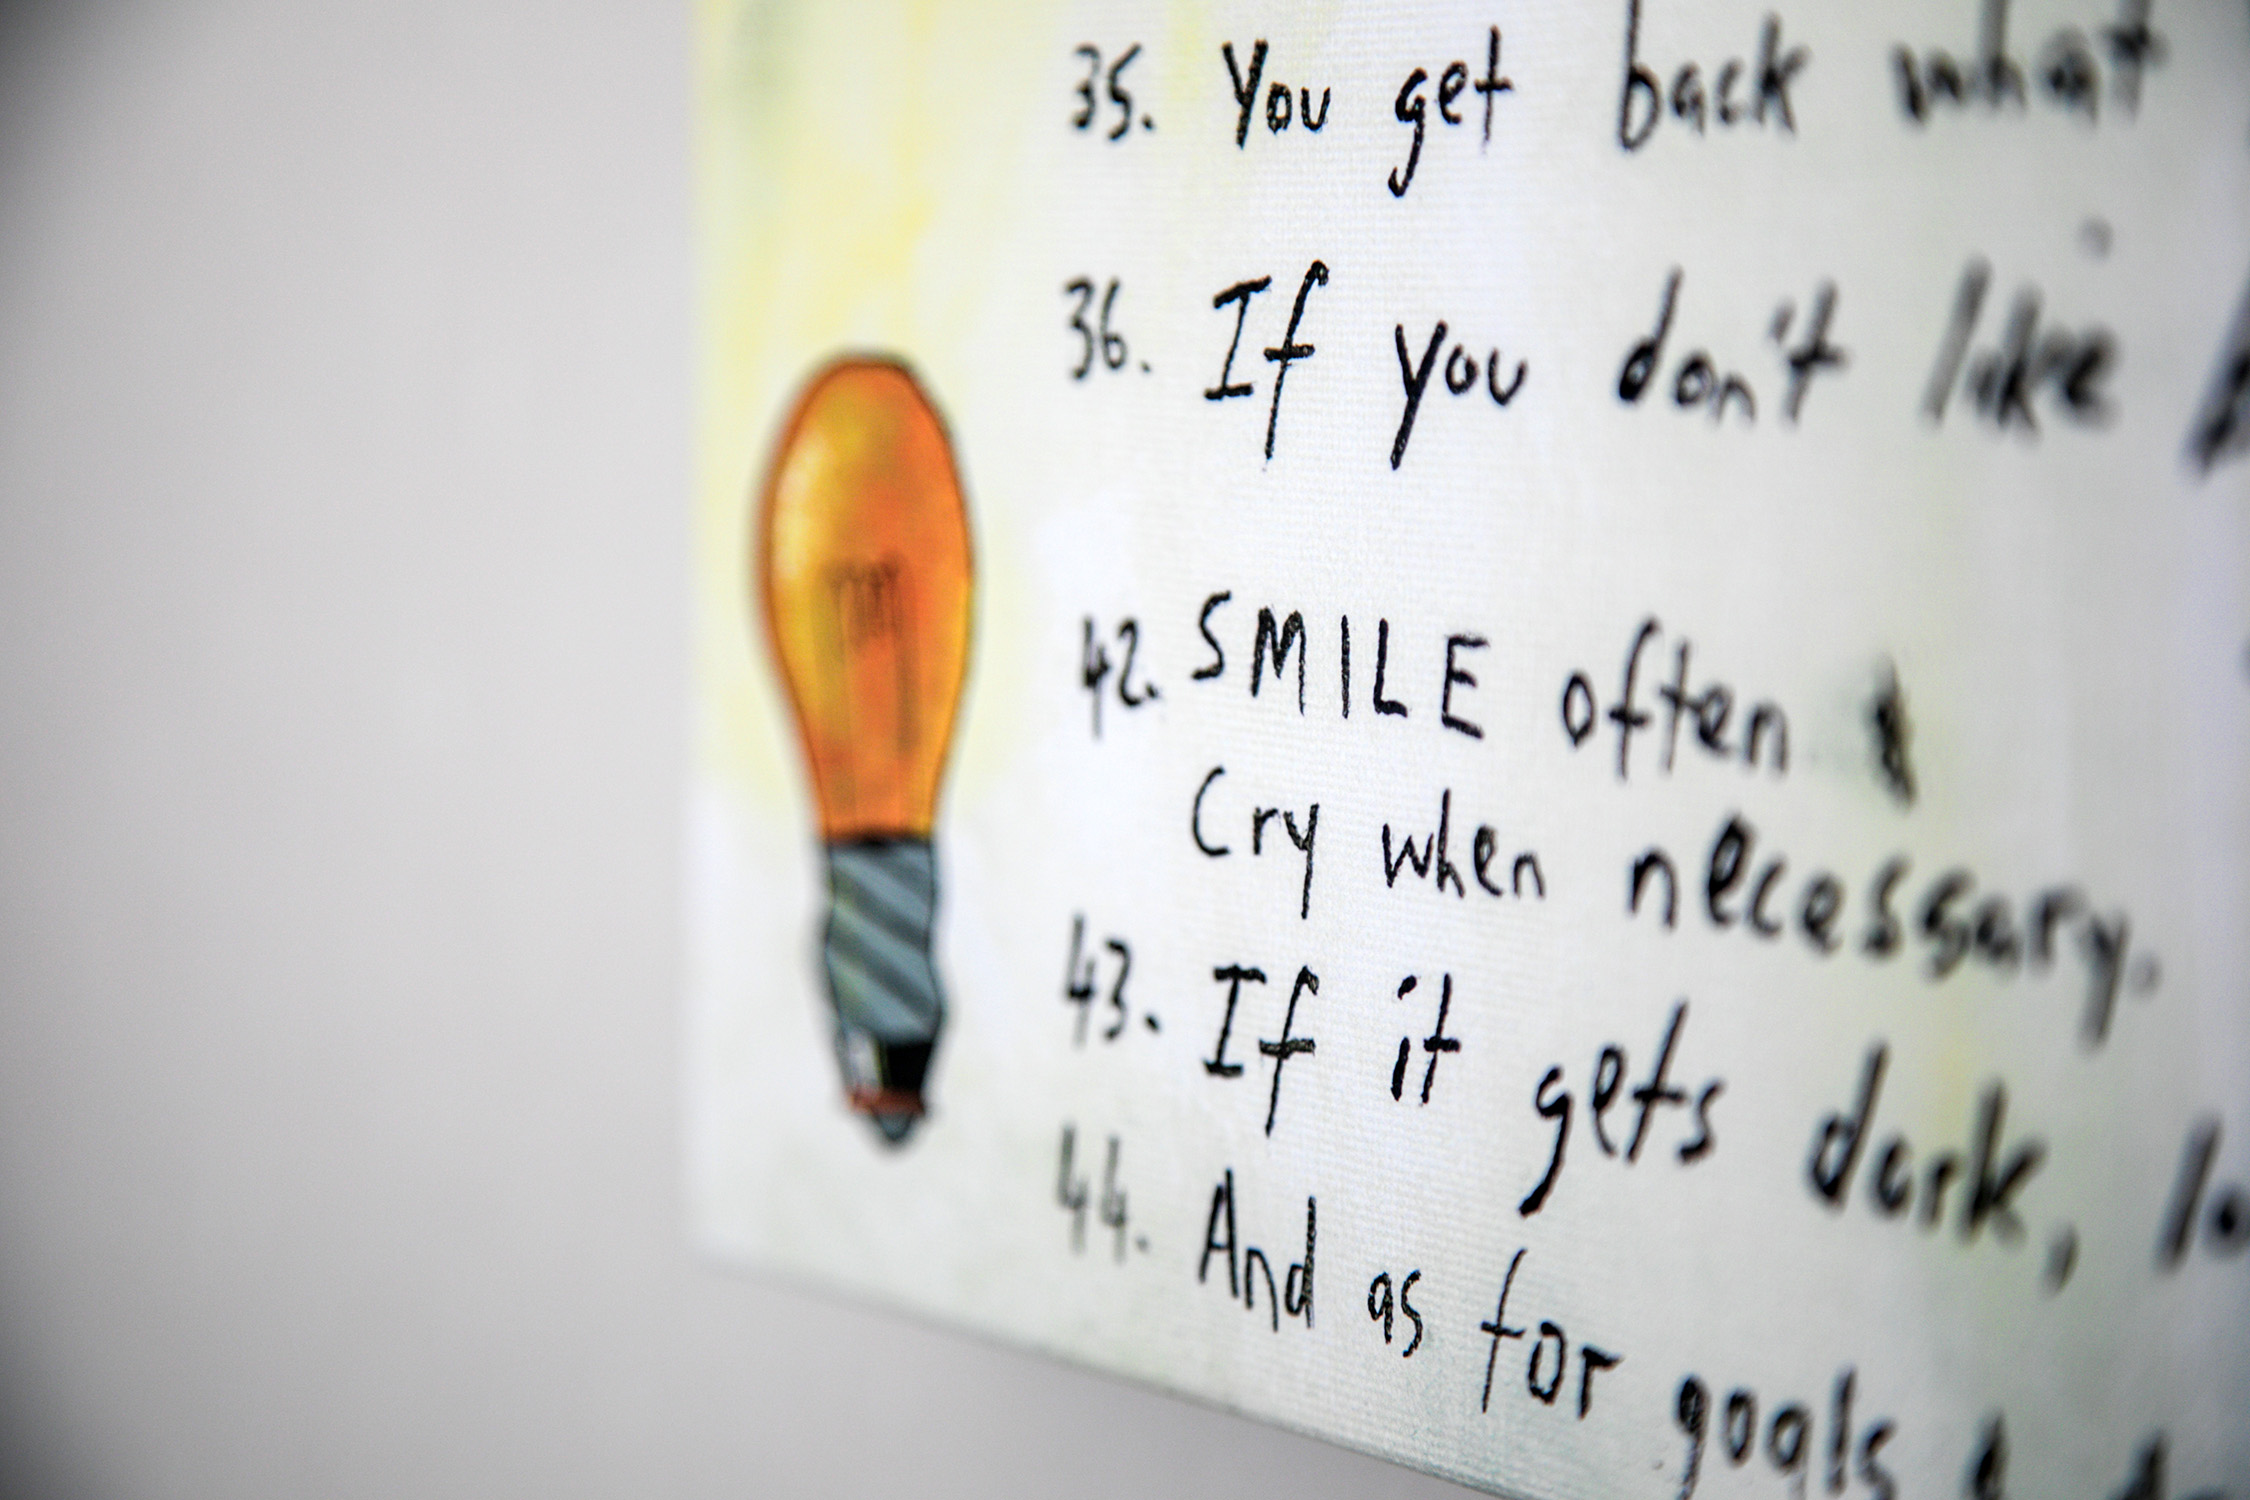 35. You get back what
36. If you don't like
42. SMILE often &
Cry when necessary.
43. If it gets dark,
44. And as for goals &